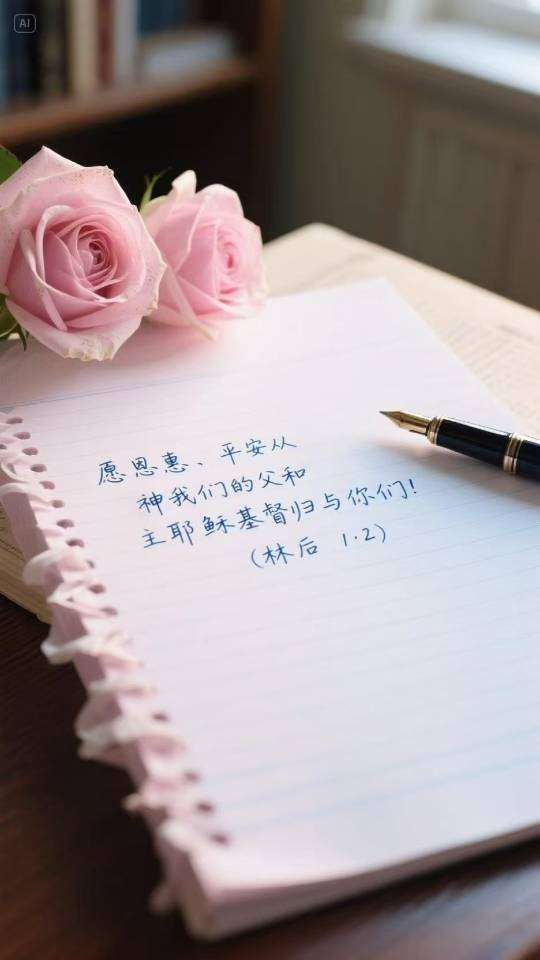 AI
愿恩惠、平安从
神我们的父和
主耶稣基督归与你们！
（林后 1.2）